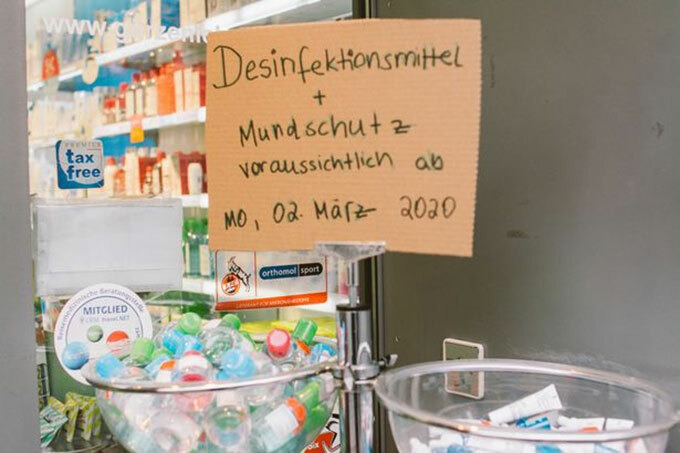 Desinfektionsmittel
+
Mundschutz
voraussichtlich ab
Mo, 02. März 2020
PREMIER
tax
free
orthomol sport
Reisemedizinische Beratungsstelle
MITGLIED